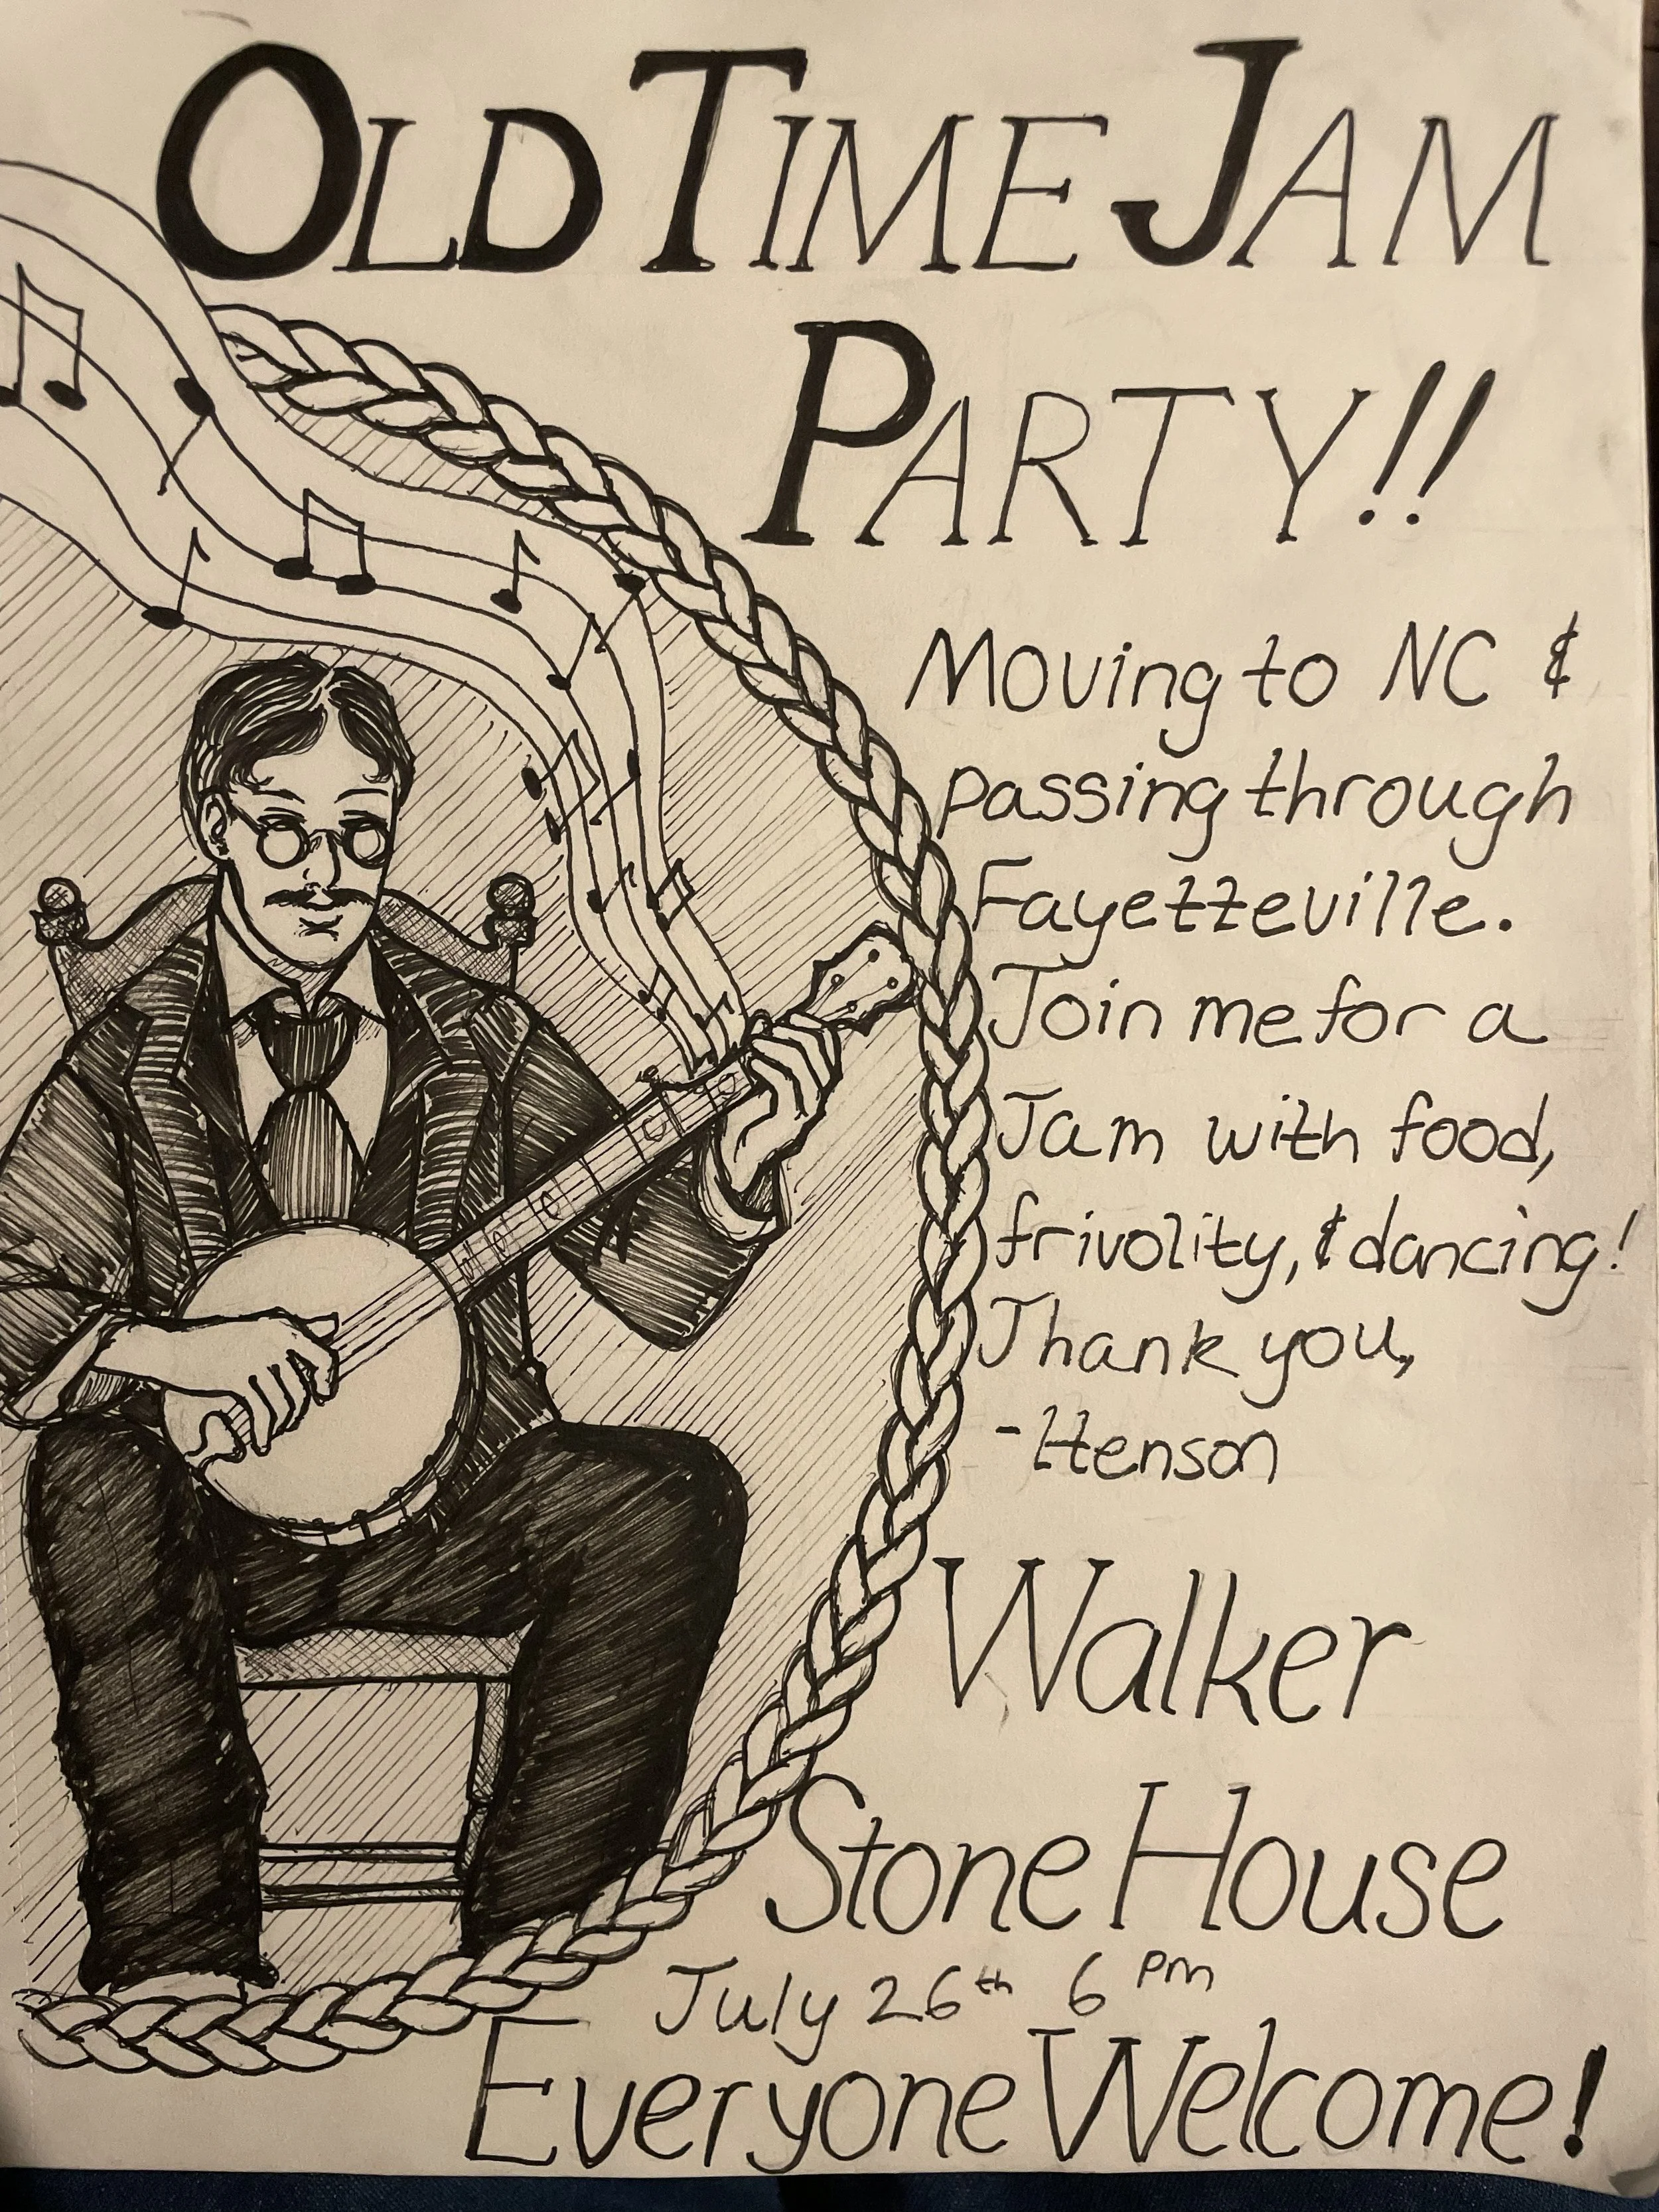 OLD TIME JAM
PARTY!!
Moving to NC &
passing through
Fayetteville.
Join me for a
Jam with food,
frivolity, & dancing!
Thank you,
-Henson
Walker
Stone House
July 26th 6 pm
Everyone Welcome!